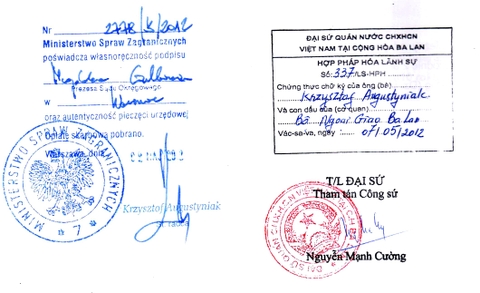 Nr 2778/K/2012
Ministerstwo Spraw Zagranicznych
poświadcza własnoręczność podpisu
Magdalena
Prezesa Sądu Okręgowego
w Warszawie
oraz autentyczność pieczęci urzędowej
Opłatę skarbową pobrano.
Warszawa, dnia
Krzysztof Augustyniak
MINISTERSTWO SPRAW ZAGRANICZNYCH
* 7 *
ĐẠI SỨ QUÁN NƯỚC CHXHCN
VIỆT NAM TẠI CỘNG HÒA BA LAN
HỢP PHÁP HÓA LÃNH SỰ
Số: 337/LS-HPH
Chứng thực chữ ký của ông (bà)
Krzysztof Augustyniak
Và con dấu của (cơ quan)
Bộ Ngoại Giao Ba Lan
Vác-sa-va, ngày : 07/05/2012
T/L ĐẠI SỨ
Tham tán Công sứ
Nguyễn Mạnh Cường